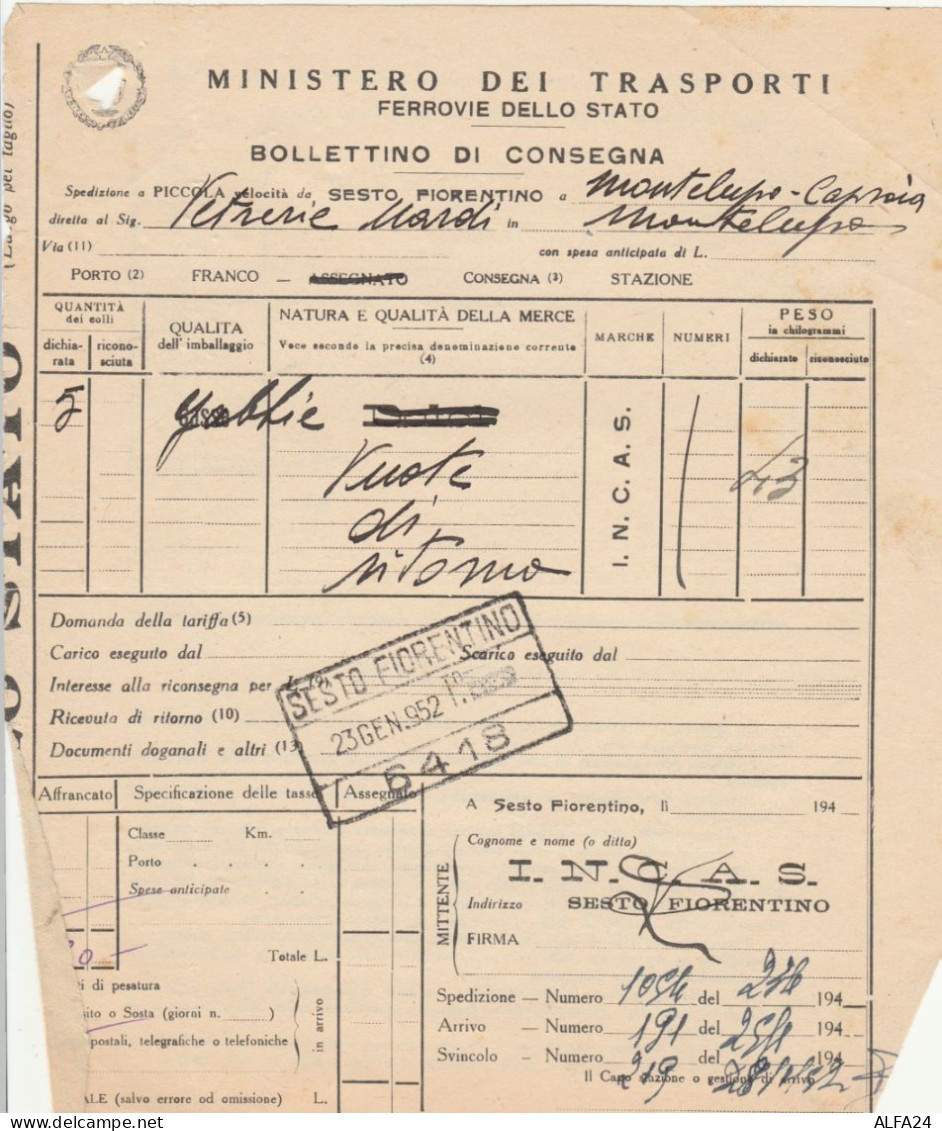 MINISTERO DEI TRASPORTI
FERROVIE DELLO STATO
BOLLETTINO DI CONSEGNA
Spedizione a PICCOLA velocità da SESTO FIORENTINO a Montelupo-Capraia
diretta al Sig. Vetrerie Nardi in Montelupo
Via (11) con spesa anticipata di L.
PORTO (2) FRANCO — ASSEGNATO CONSEGNA (3) STAZIONE
(Lungo per taglio)
LO STATO
QUANTITÀ dei colli
dichiarata riconosciuta
QUALITA dell'imballaggio
NATURA E QUALITÀ DELLA MERCE
Voce secondo la precisa denominazione corrente (4)
MARCHE NUMERI
PESO in chilogrammi
dichiarato riconosciuto
5 gabbie
Vuote
di
ritorno
I. N. C. A. S.
43
Domanda della tariffa (5)
Carico eseguito dal Scarico eseguito dal
Interesse alla riconsegna per L.
Ricevuta di ritorno (10)
Documenti doganali e altri (13)
SESTO FIORENTINO
23 GEN. 952
6418
Affrancato Specificazione delle tasse Assegnato
Classe Km.
Porto . . . .
Spese anticipate . .
Totale L.
di pesatura
o Sosta (giorni n. )
postali, telegrafiche o telefoniche
in arrivo
ALE (salvo errore od omissione) L.
A Sesto Fiorentino, lì 194
MITTENTE
Cognome e nome (o ditta)
I. N. C. A. S.
Indirizzo SESTO FIORENTINO
FIRMA
Spedizione — Numero del 194
Arrivo — Numero 191 del 194
Svincolo — Numero 219 del 194
Il Capo stazione o gestione di arrivo
ALFA24